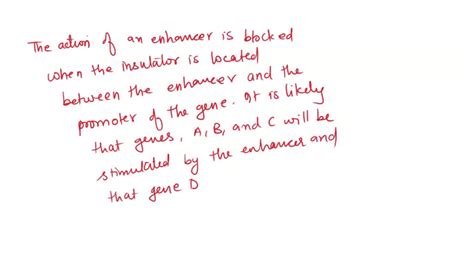 The action of an enhancer is blocked
when the insulator is located
between the enhancer and the
promoter of the gene. It is likely
that genes, A, B, and C will be
stimulated by the enhancer and
that gene D